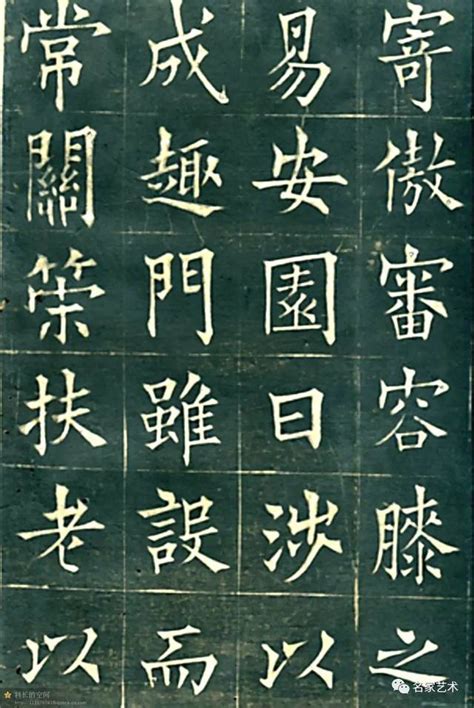 寄傲審容膝之
易安園日涉以
成趣門雖設而
常關策扶老以
名家艺术